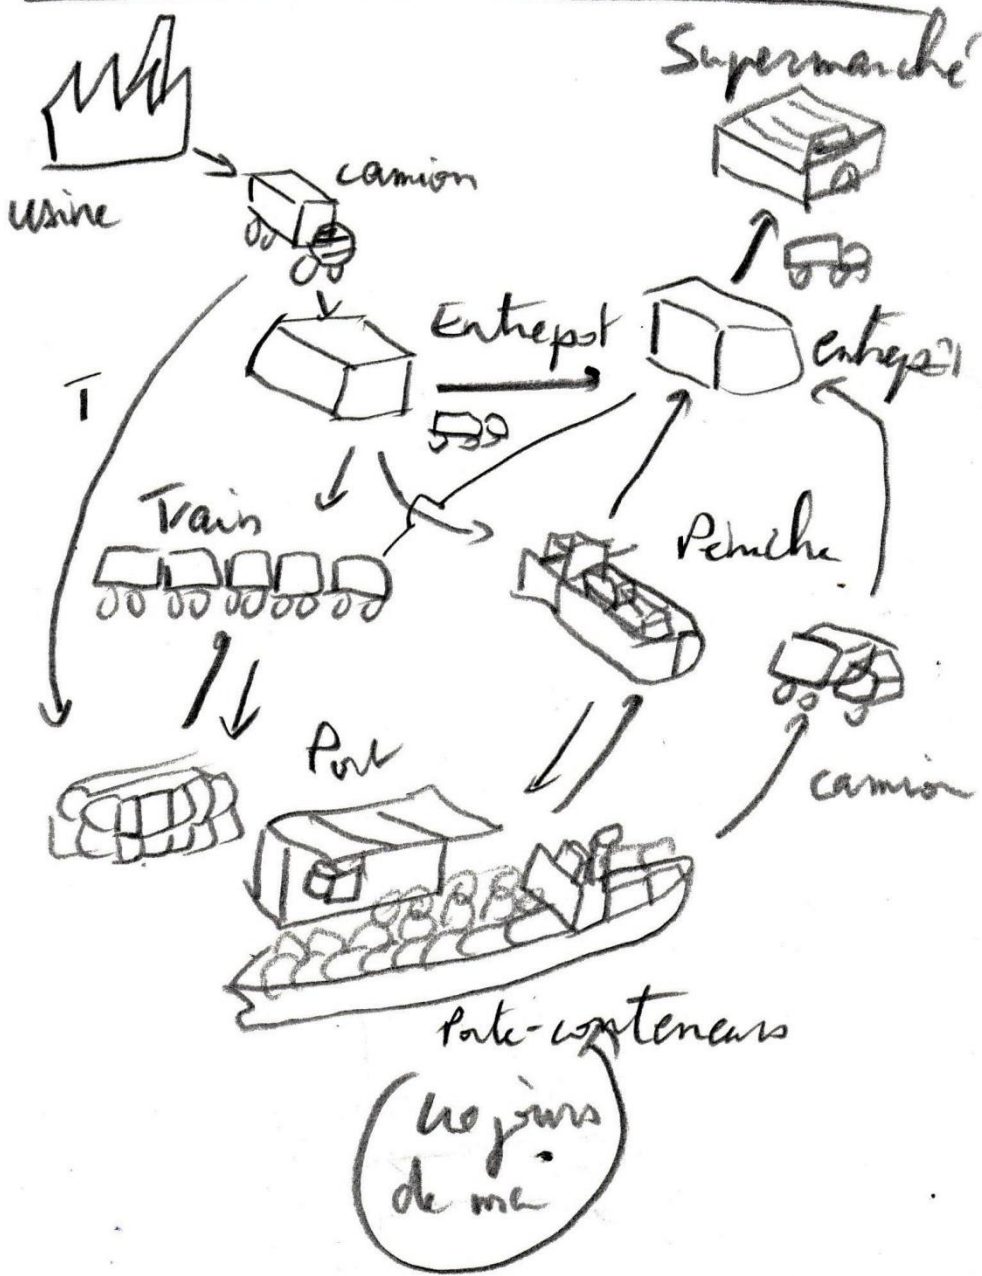 Supermarché
camion
usine
Entrepot
entrepôt
T
Train
Péniche
Port
camion
Porte-conteneurs
jours
de